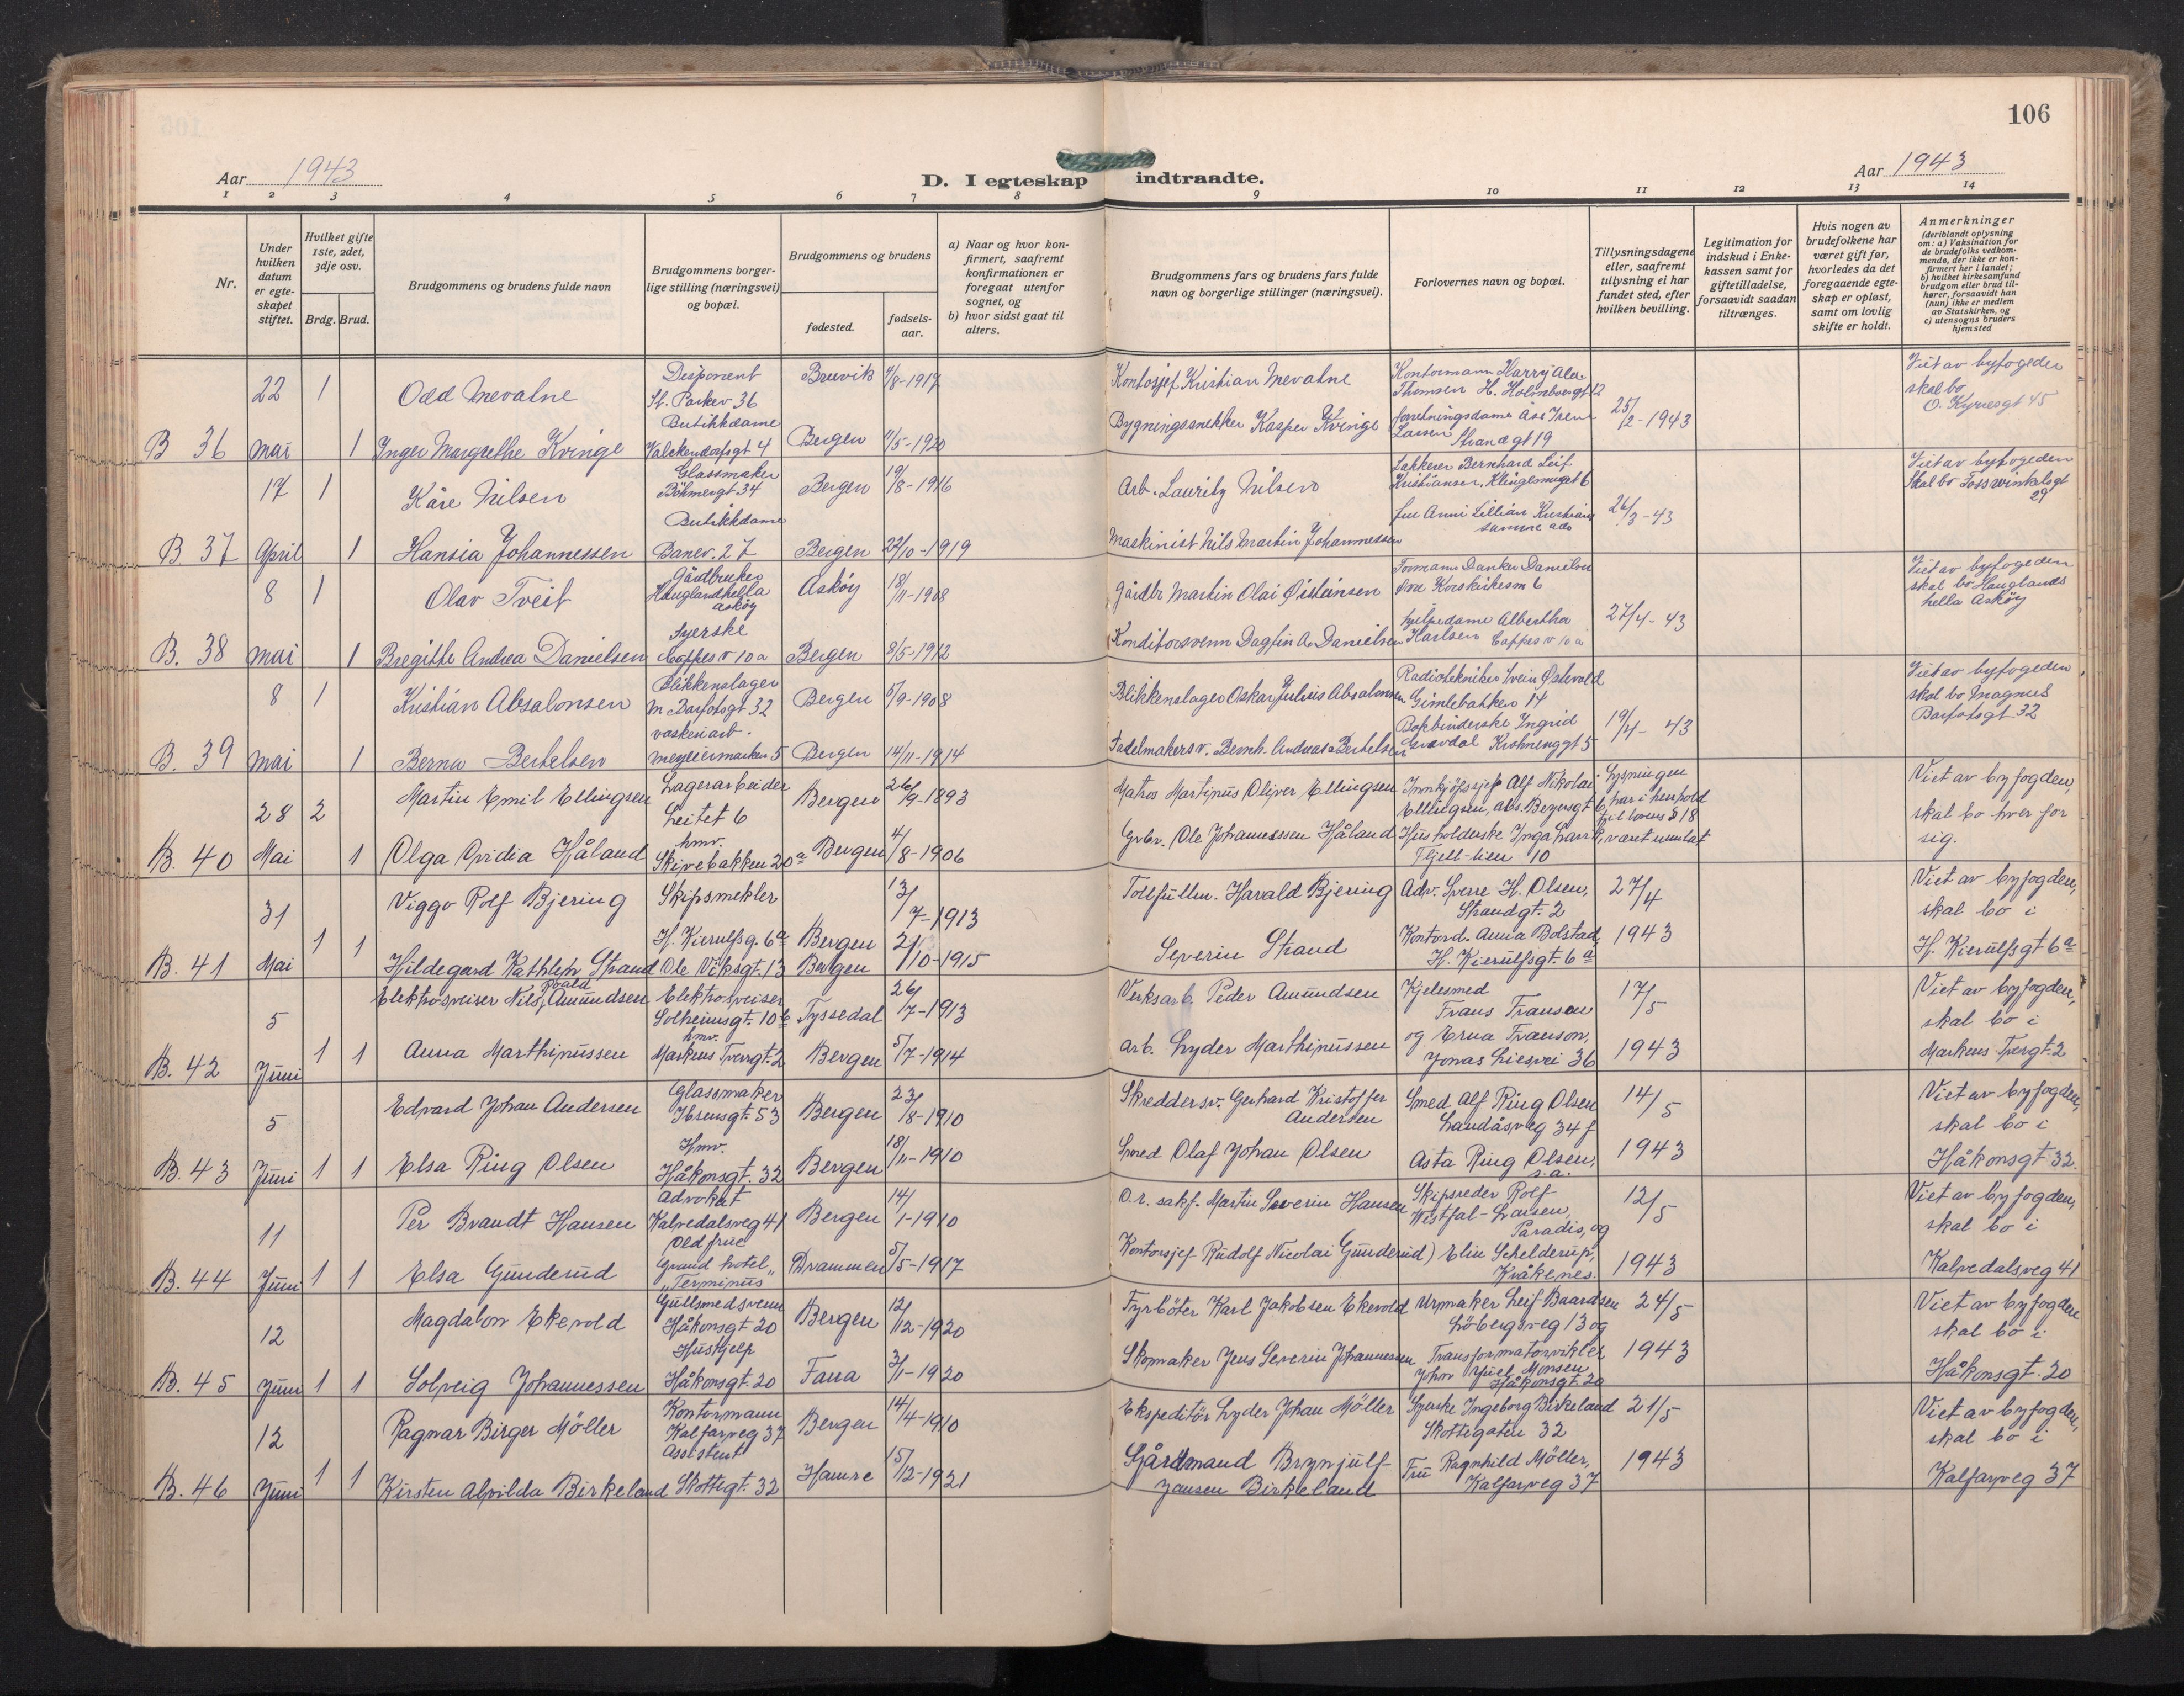 106
Aar 1943
D. I egteskap indtraadte.
Aar 1943
1 2 3 4 5 6 7 8 9 10 11 12 13 14
Nr.
Under hvilken datum er egte-skapet stiftet.
Hvilket gifte 1ste, 2det, 3dje osv.
Brdg. Brud.
Brudgommens og brudens fulde navn
Brudgommens borger-lige stilling (næringsvei) og bopæl.
Brudgommens og brudens
fødested.
fødsels-aar.
a) Naar og hvor kon-firmert, saafremt konfirmationen er foregaat utenfor sognet, og
b) hvor sidst gaat til alters.
Brudgommens fars og brudens fars fulde navn og borgerlige stillinger (næringsvei).
Forlovernes navn og bopæl.
Tillysningsdagene eller, saafremt tillysning ei har fundet sted, efter hvilken bevilling.
Legitimation for indskud i Enke-kassen samt for giftetilladelse, forsaavidt saadan tiltrænges.
Hvis nogen av brudefolkene har været gift før, hvorledes da det foregaaende egte-skap er opløst, samt om lovlig skifte er holdt.
Anmerkninger
(deriblandt oplysning om: a) Vaksination for de brudefolks vedkom-mende, der ikke er kon-firmert her i landet; b) hvilket kirkesamfund brudgom eller brud til-hører, forsaavidt han (hun) ikke er medlem av Statskirken, og c) utensogns bruders hjemsted
22 1 Odd Mevatne Disponent St. Parkv 36 Bruvik 4/8-1917 Kontosjef Kristian Mevatne Kontormann Harry Alex Thomsen H. Holmboesgt 12 Viet av byfogden skal bo O. Kyrresgt 45
B 36 Mai 1 Inger Margrethe Kvinge Butikkdame Valckendorfsgt 4 Bergen 11/5-1920 Bygningssnekker Kasper Kvinge forretningsdame Åse Irene Lassen Strandgt 19 25/2-1943
17 1 Kåre Nilsen Glassmaker Böhmergt 34 Bergen 19/8-1916 Arb. Lauritz Nilsen Lakkerer Bernhard Leif Kristiansen, Klingesmuget 6 Viet av byfogden Skal bo Fosswinkelsgt 29
B. 37 April 1 Hansia Johannessen Butikkdame Banev. 27 Bergen 22/10-1919 Maskinist Nils Martin Johannessen fru Anni Lillian Kristians samme ads 26/3-43
8 1 Olav Tveit Gårdbruker Hauglandhella Askøy Askøy 18/11-1908 Gårdbr Martin Olai Øisteinsen Formann Danker Danielsen Øvre Korskirkesm 6 Viet av byfogden skal bo Hauglands hella Askøy
B. 38 Mai 1 Bregitte Andrea Danielsen Syerske Cappes v 10 a Bergen 8/5-1912 Konditorsvenn Dagfin A. Danielsen hjelpedame Albertha Karlsen Cappes v 10 a 27/4-43
8 1 Kristian Absalonsen Blikkenslager M Barfotsgt 32 Bergen 5/9-1908 Blikkenslager Oskar Julius Absalonsen Radiotekniker Svein Østevold Gimlebakken 14 Viet av byfogden skal bo Magnus Barfotsgt 32
B. 39 Mai 1 Berna Bertelsen vaskeriarb. Meyeermarken 5 Bergen 14/11-1914 Sadelmakersv. Bernh. Andreas Bertelsen Bokbinderske Ingrid Gravdal Krohnenggt 5 19/4-43
28 2 Martin Emil Ellingsen Lagerarbeider Leitet 6 Bergen 26/9-1893 Matros Martinus Oliver Ellingsen Innkjøpssjef Alf Nikolai Ellingsen, Abs. Beyersgt 6, Lysningen har i henhold til lovens § 18 Viet av byfogden, skal bo hver for sig.
B. 40 Mai 1 Olga Ovidia Håland hmv. Skivebakken 20a Bergen 4/8-1906 Grbr. Ole Johannessen Håland Husholderske Inga Fjell-lien 10 været unnlat
31 Viggo Rolf Bjering Skipsmekler H. Kierulfsg. 6a Bergen 13/7-1913 Tollfullm. Harald Bjering Adv. Sverre H. Olsen, Strandgt. 2 27/4 Viet av byfogden, skal bo i
B. 41 Mai 1 1 Hildegard Kathleen Strand Ole Viksgt. 13 Bergen 21/10-1915 Severin Strand Kontord. Anna Bolstad, H. Kierulfsgt. 6a 1943 H. Kierulfsgt 6a
5 Elektrosveiser Nils Roald Amundsen Elektrosveiser Solheimsgt. 10b Tyssedal 26/7-1913 Verksarb. Peder Amundsen Kjelesmed Frans Transon 17/5 Viet av byfogden, skal bo i
B. 42 Juni 1 1 Anna Marthinussen hmv. Markens Tverrgt. 2 Bergen 5/7-1914 Arb. Lyder Marthinussen og Erna Transon, Jonas Liesvei 36 1943 Markens Tvergt. 2
5 Edvard Johan Andersen Glassmaker Ibsensgt. 53 Bergen 23/8-1910 Skreddersv. Gerhard Kristoffer Andersen Smed Alf Ring Olsen Landåsveg 34f 14/5 Viet av byfogden, skal bo i
B. 43 Juni 1 1 Elsa Ring Olsen Hmv. Håkonsgt. 32 Bergen 18/11-1910 Smed Olaf Johan Olsen Asta Ring Olsen, s.a. 1943 Håkonsgt 32.
11 Per Brandt Hansen Advokat Kalvedalsveg 41 Bergen 14/1-1910 O.r. sakf. Martin Severin Hansen Skipsreder Rolf Westfal-Larsen, Paradis, og 12/5 Viet av byfogden, skal bo i
B. 44 Juni 1 1 Elsa Gunderud Oldfrue Grand hotel „Terminus" Drammen 5/5-1917 Kontorsjef Rudolf Nicolai Gunderud) Elin Schelderup, Kråkenes. 1943 Kalvedalsveg 41
12 Magdalon Ekevold Gullsmedsvenn Håkonsgt 20 Bergen 12/12-1920 Fyrböter Karl Jakobsen Ekevold Urmaker Leif Baardsen Löbergsveg 13 og 24/5 Viet av byfogden skal bo i
B. 45 Juni 1 1 Solveig Johannessen Hushjelp Håkonsgt. 20 Fana 3/1-1920 Skomaker Jens Severin Johannessen Transformatorvikler John Juel Monsen Håkonsgt. 20 1943 Håkonsgt. 20
12 Ragnar Birger Möller Kontormann Kalfarveg 37 Bergen 14/4-1910 Ekspeditör Lyder Johan Möller Syerske Ingeborg Birkeland Skottegaten 32 21/5 Viet av byfogden, skal bo i
B. 46 Juni 1 1 Kirsten Alvilda Birkeland Assistent Skottegt. 32 Hamre 15/12-1921 Gårdmand Brynjulf Jansen Birkeland Fru Ragnhild Möller, Kalfarveg 37 1943 Kalfarveg 37